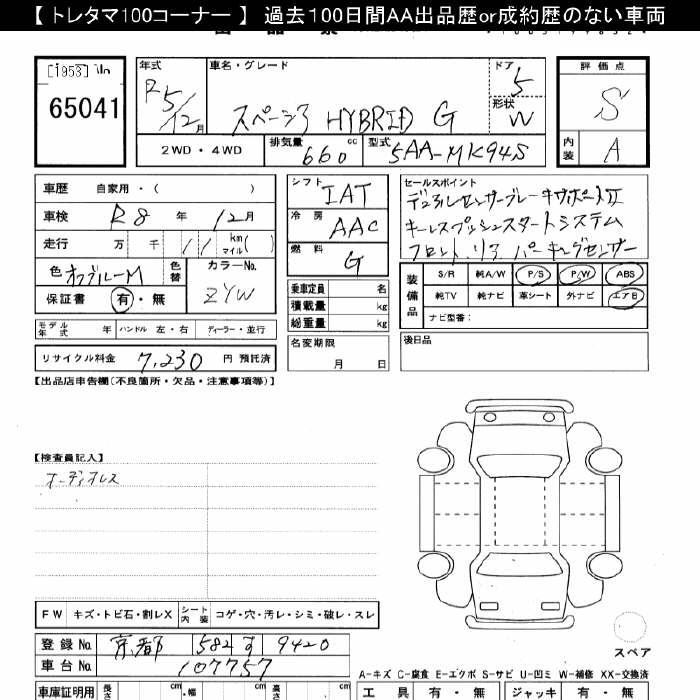 【 トレタマ100コーナー 】 過去100日間AA出品歴or成約歴のない車両
[1953]
65041
年式
R5/12月
車名・グレード
スペーシア HYBRID G
ドア
5
形状
W
2WD・4WD
排気量
660 cc
型式
5AA-MK94S
評価点
S
内装
A
車歴 自家用・( )
車検 R8 年 12月
走行 万 千 11 km マイル( )
色 オフブルーM
色替
カラーNo.
ZYW
保証書 有・無
モデル年式 年 ハンドル 左・右 ディーラー・並行
リサイクル料金 7,230 円 預託済
シフト IAT
冷房 AAC
燃料 G
乗車定員 名
積載量 kg
総重量 kg
名変期限
月 日
セールスポイント
デュアルセンサーブレーキサポートII
キーレスプッシュスタートシステム
フロント・リア パーキングセンサー
装備品
S/R 純A/W P/S P/W ABS
純TV 純ナビ 革シート 外ナビ エアB
ナビ型番:
後日品
【出品店申告欄(不良箇所・欠品・注意事項等)】
【検査員記入】
オーディオレス
FW キズ・トビ石・割レX
シート内装 コゲ・穴・汚レ・シミ・破レ・スレ
登録No. 京都 582 す 9420
車台No. 107757
車庫証明用 長さ cm 幅 cm 高さ cm
スペア
A-キズ C-腐食 E-エクボ S-サビ U-凹ミ W-補修 XX-交換済
工具 有・無 ジャッキ 有・無